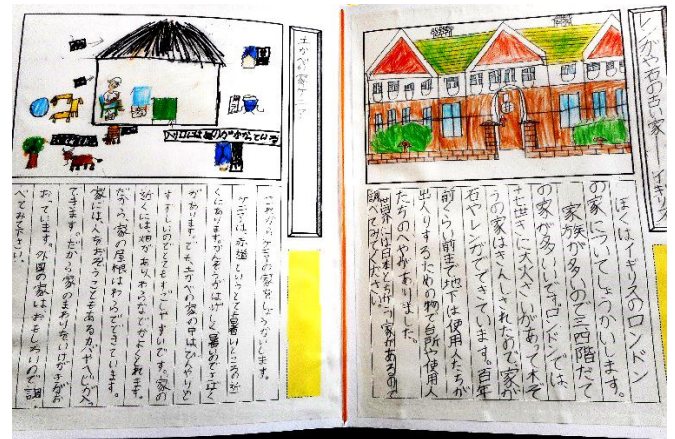 レンガや石の古い家 ― イギリス
ぼくはイギリスのロンドン
の家についてしょうかいします。
家族が多いので三四階だて
の家が多いです。ロンドンでは、
十七世きに大火さいがあって木ぞ
うの家はきんしされたので、家が
石やレンガでできています。百年
前くらい前まで地下は使用人たちが
出入りするための物で台所や使用人
たちのへやがありました。
世界には日本とちがう家があるので
調べてみてください。
土かべの家ケニア
これからケニアの家をしょうかいします。
ケニアは、赤道というとても暑いところの近
くにあります。かんそうがはげしく、暑めでさばく
があります。でも、土かべの家の中はひんやりと
すずしいのでとてもすごしやすいです。家の
近くには畑があり、わらなどがよくとれます。
だから、家の屋根はわらでできています。
家には、人をおそうこともあるカバやヘビが入っ
てきます。だから家のまわりをいけがきがお
おっています。外国の家はおもしろいので調
べてみて下さい。